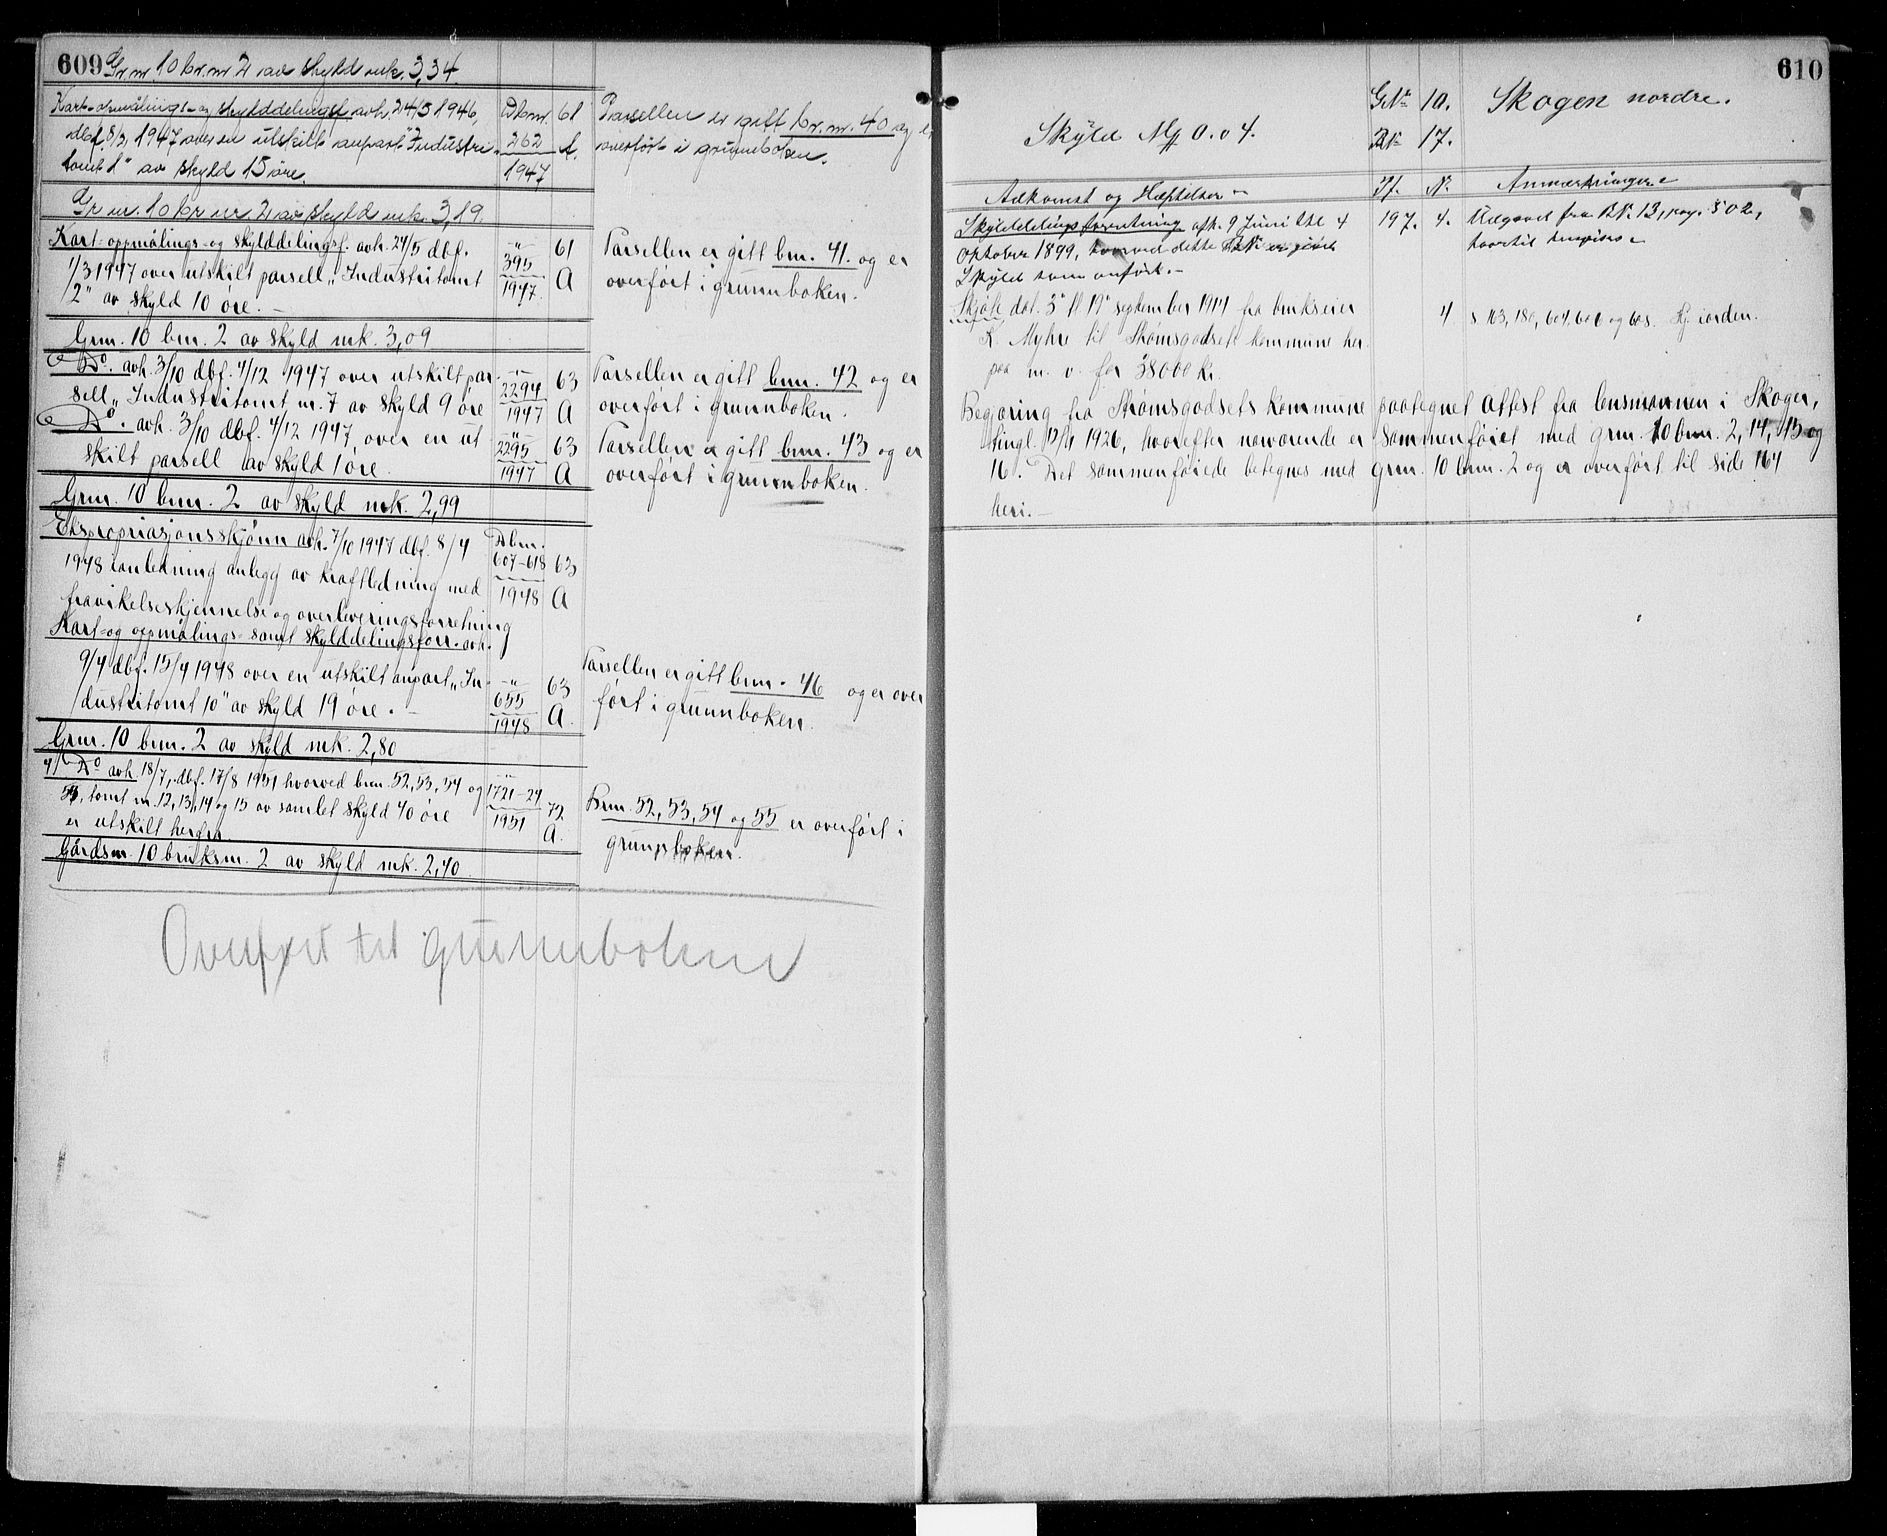 609 Gr. nr 10 br. nr 2 av skyld mk. 3,34
Kart- opmålings- og skylddelingsf. avh. 24/5 1946,
dbf. 8/2 1947 over en utskilt anpart "Industri-
tomt 1" av skyld 15 øre.
Dbnr. 61
262 A.
1947
Parsellen er gitt br. nr. 40 og er
overført i grunnboken.
Gr nr. 10 br nr 2 av skyld mk. 3,19.
Kart- oppmålings- og skylddelingsf. avh. 24/5 dbf.
1/3 1947 over utskilt parsell „Industritomt
2" av skyld 10 øre. —
—"— 61
395 A
1947.
Parsellen er gitt bnr. 41. og er
overført i grunnboken.
Gnr. 10 bnr. 2 av skyld mk. 3,09
Do. avh. 3/10 dbf. 4/12 1947 over utskilt par-
sell „Industritomt nr. 7 av skyld 9 øre
—"— 63
2294 A
1947
Parsellen er gitt bnr. 42 og er
overført i grunnboken.
Do. avh. 3/10 dbf. 4/12 1947, over en ut
skilt parsell av skyld 1 øre.
—"— 63
2295 A
1947
Parsellen er gitt bnr. 43 og er
overført i grunnboken.
Gnr. 10 bnr. 2 av skyld mk. 2,99
Ekspropriasjonsskjønn avh. 7/10 1947 dbf. 8/4
1948 i anledning anlegg av kraftledning med
fravikelseskjennelse og overleveringsforretning
Dbnr.
607-618 63
1948 A
Kart- og oppmålings- samt skylddelingsforr. avh.
9/4 dbf. 15/4 1948 over en utskilt anpart „In-
dustritomt 10" av skyld 19 øre. —
—"— 63
655 A.
1948
Parsellen er gitt bnr. 46 og er over
ført i grunnboken.
Gnr. 10 bnr. 2 av skyld mk. 2,80
Do avh. 18/7, dbf. 17/8 1951 hvorved bnr. 52, 53, 54 og
55, tomt nr. 12, 13, 14 og 15 av samlet skyld 40 øre
er utskilt herfra
—"—
1721-24 72
1951 A.
Bnr. 52, 53, 54 og 55 er overført i
grunnboken.
Gårdsnr. 10 bruksnr. 2 av skyld mk. 2,40
Overført til grunnboken
610
Skyld M 0.04.
GNr 10.
BNr 17.
Skogen nordre.
Adkomst og Hæftelser
Pr. N. Anmærkninger
Skylddelingsforretning afh. 9 Juni thl 4
Oktober 1899, hvorved dette BN. er givet
Skyld som anført. —
197. 4.
Udgaaet fra BN. 13, pag. 502,
hvortil henvises
Skjøte dat. 3. tl 19. september 1914 fra brukseier
K. Myhre til Strømsgodsets kommune her
paa m. v. for 38000 kr.
4
s. 163, 180, 604, 606 og 608. Hj. i orden.
Begjæring fra Strømsgodsets kommune paategnet attest fra lensmannen i Skoger,
tingl. 12/4 1926, hvorefter nærværende er sammenføiet med gnr. 10 bnr. 2, 14, 15 og
16. Det sammenføiede betegnes med gnr. 10 bnr. 2 og er overført til side 164
heri. —